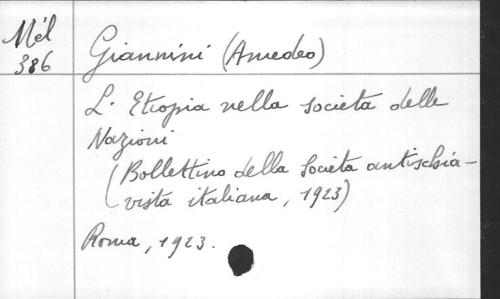 Mél
386
Giannini (Amedeo)
L'Etiopia nella societa delle
Nazioni
(Bollettino della Societa antischia-
vista italiana, 1923)
Roma, 1923.